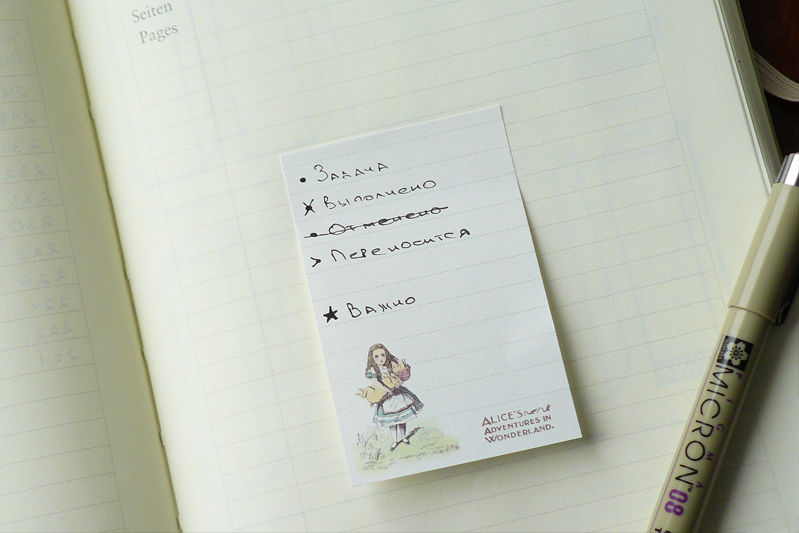 Seiten
Pages
• Задача
× Выполнено
• Отменено
> Переносится
★ Важно
ALICE'S
ADVENTURES IN
WONDERLAND.
PIGMA
MICRON™ 08